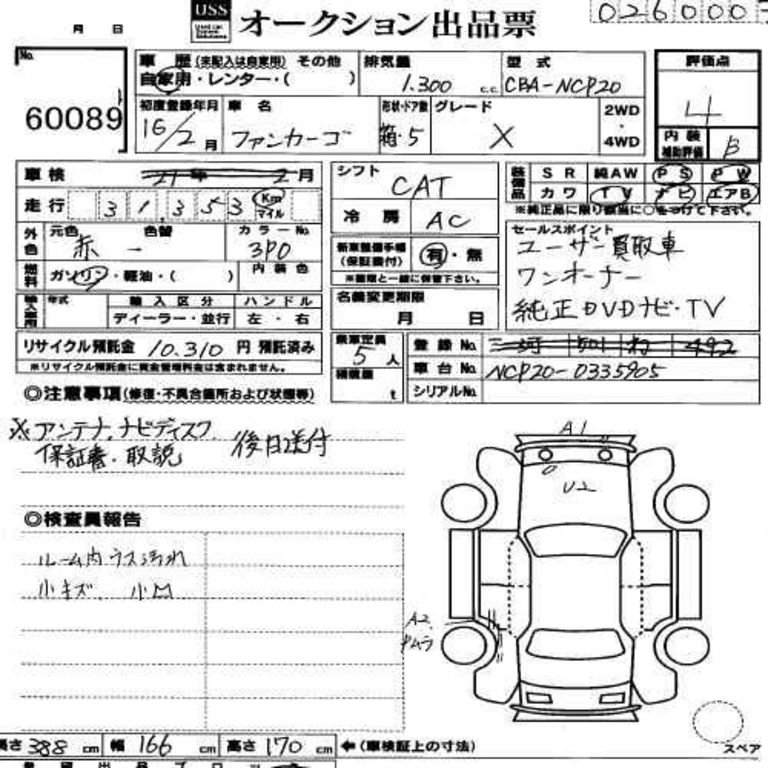 USS オークション出品票
月 日
No. 60089
車歴 (未記入は自家用) その他
自家用・レンター・( )
排気量 1.300 c.c.
型式 CBA-NCP20
評価点 4
内装補助評価 B
初度登録年月 16/2月
車名 ファンカーゴ
形状・ドア数 箱・5
グレード X
2WD・4WD
車検 21年 2月
走行 31,353 Km マイル
シフト CAT
冷房 AC
装備品 SR 純AW PS PW
カワ TV ナビ エアB
※純正品に限り該当に○をつけて下さい。
外色 元色 赤 色替 ー カラーNo. 3P0
燃料 ガソリン・軽油・( ) 内装色
新車整備手帳(保証書付) 有・無
※書類と一緒に保管下さい。
セールスポイント
ユーザー買取車
ワンオーナー
純正DVDナビ・TV
輸入車用 年式 輸入区分 ハンドル
ディーラー・並行 左・右
名義変更期限
月 日
リサイクル預託金 10.310 円 預託済み
※リサイクル預託金に資金管理料金は含まれません。
乗車定員 5人
積載量 t
登録No.
車台No. NCP20-0335905
シリアルNo.
◎注意事項(修復・不具合箇所および状態等)
※アンテナ、ナビディスク
保証書・取説 後日送付
◎検査員報告
ルーム内ウス汚れ
小キズ、小凹
A1
U2
A2
スペア
長さ 388 cm 幅 166 cm 高さ 170 cm ←(車検証上の寸法)